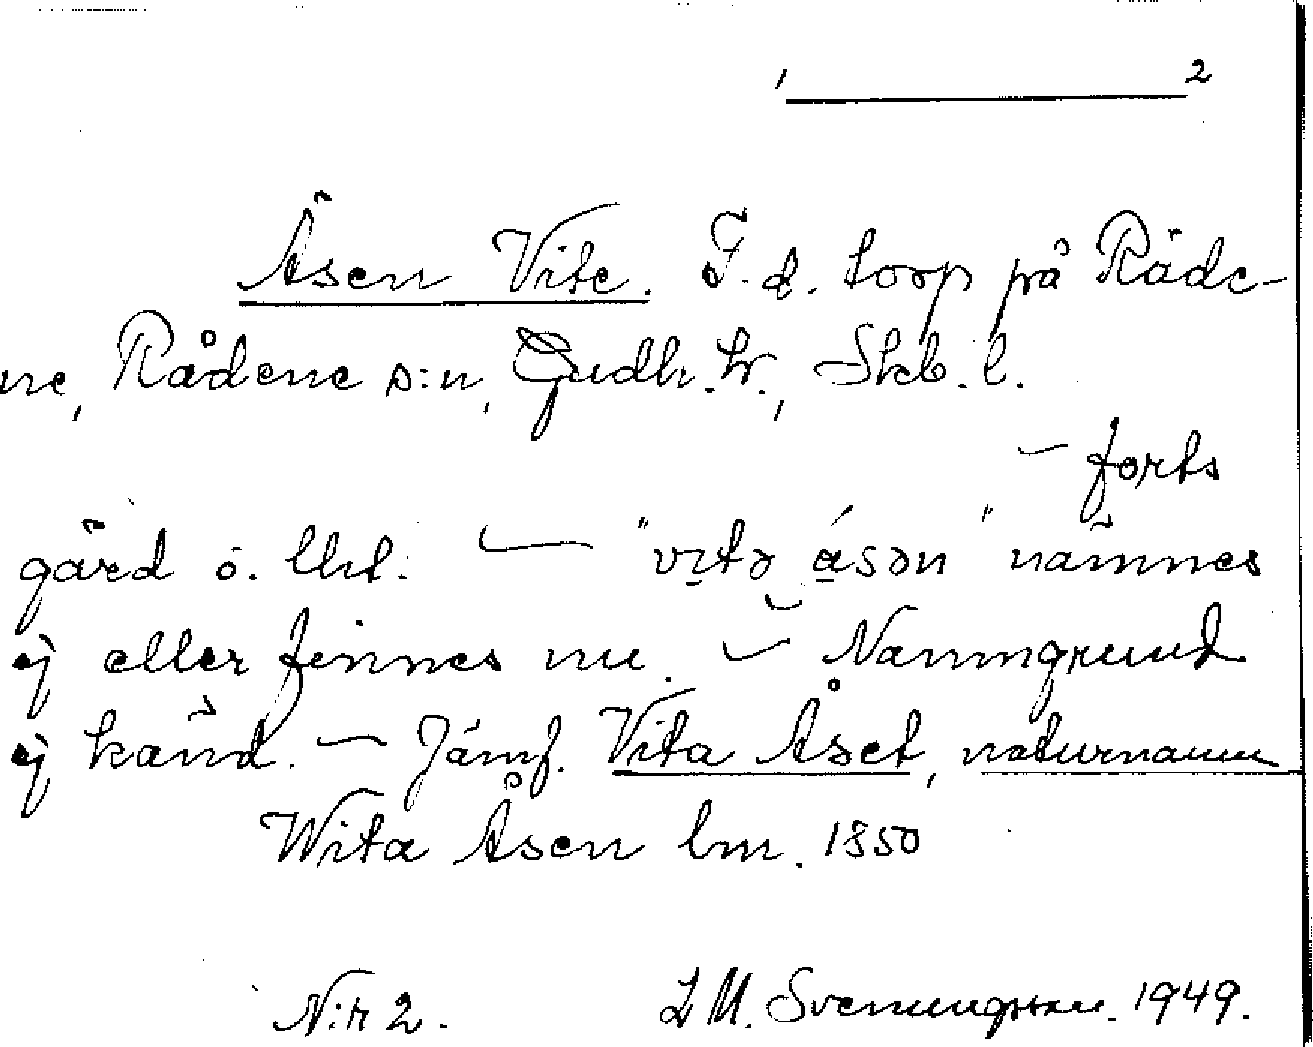 1 2
Åsen Vite. F.d. torp på Råde-
ne, Rådene s:n, Gudh. hr., Skb. l.
— forts
gård o. lht. — "vịtə ásən" nämnes
ej eller finnes nu. — Namngrund
ej känd. — Jämf. Vita Åset, naturnamn
Wita Åsen lm. 1850
N:r 2. L M. Svenungsson. 1949.